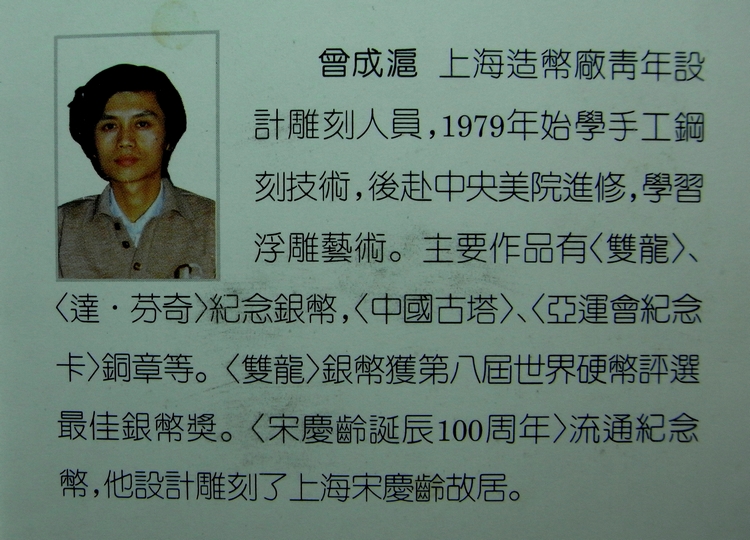 曾成滬 上海造幣廠靑年設
計雕刻人員,1979年始學手工鋼
刻技術,後赴中央美院進修,學習
浮雕藝術。主要作品有〈雙龍〉、
〈達·芬奇〉紀念銀幣,〈中國古塔〉、〈亞運會紀念
卡〉銅章等。〈雙龍〉銀幣獲第八屆世界硬幣評選
最佳銀幣獎。〈宋慶齡誕辰100周年〉流通紀念
幣,他設計雕刻了上海宋慶齡故居。